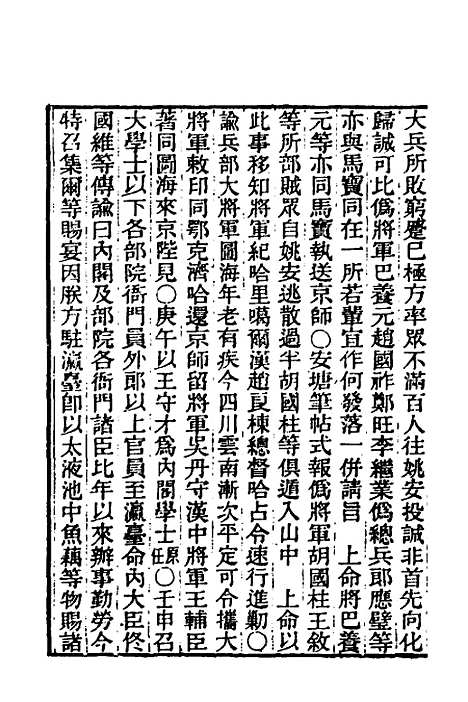 大兵所敗窮蹙已極方率眾不滿百人往姚安投誠非首先向化
歸誠可比僞將軍巴養元趙國祚鄭旺李繼業僞總兵郎應璧等
亦與馬寶同在一所若輩宜作何發落一併請旨　上命將巴養
元等亦同馬寶執送京師○安塘筆帖式報僞將軍胡國柱王敘
等所部賊眾自姚安逃散過半胡國柱等俱遁入山中　上命以
此事移知將軍紀哈里噶爾漢趙良棟總督哈占令速行進勦○
諭兵部大將軍圖海年老有疾今四川雲南漸次平定可令攜大
將軍敕印同鄂克濟哈還京師留將軍吳丹守漢中將軍王輔臣
著同圖海來京陛見○庚午以王守才爲內閣學士原任○壬申召
大學士以下各部院衙門員外郎以上官員至瀛臺命內大臣佟
國維等傳諭曰內閣及部院各衙門諸臣比年以來辦事勤勞今
特召集爾等賜宴因朕方駐瀛臺卽以太液池中魚藕等物賜諸